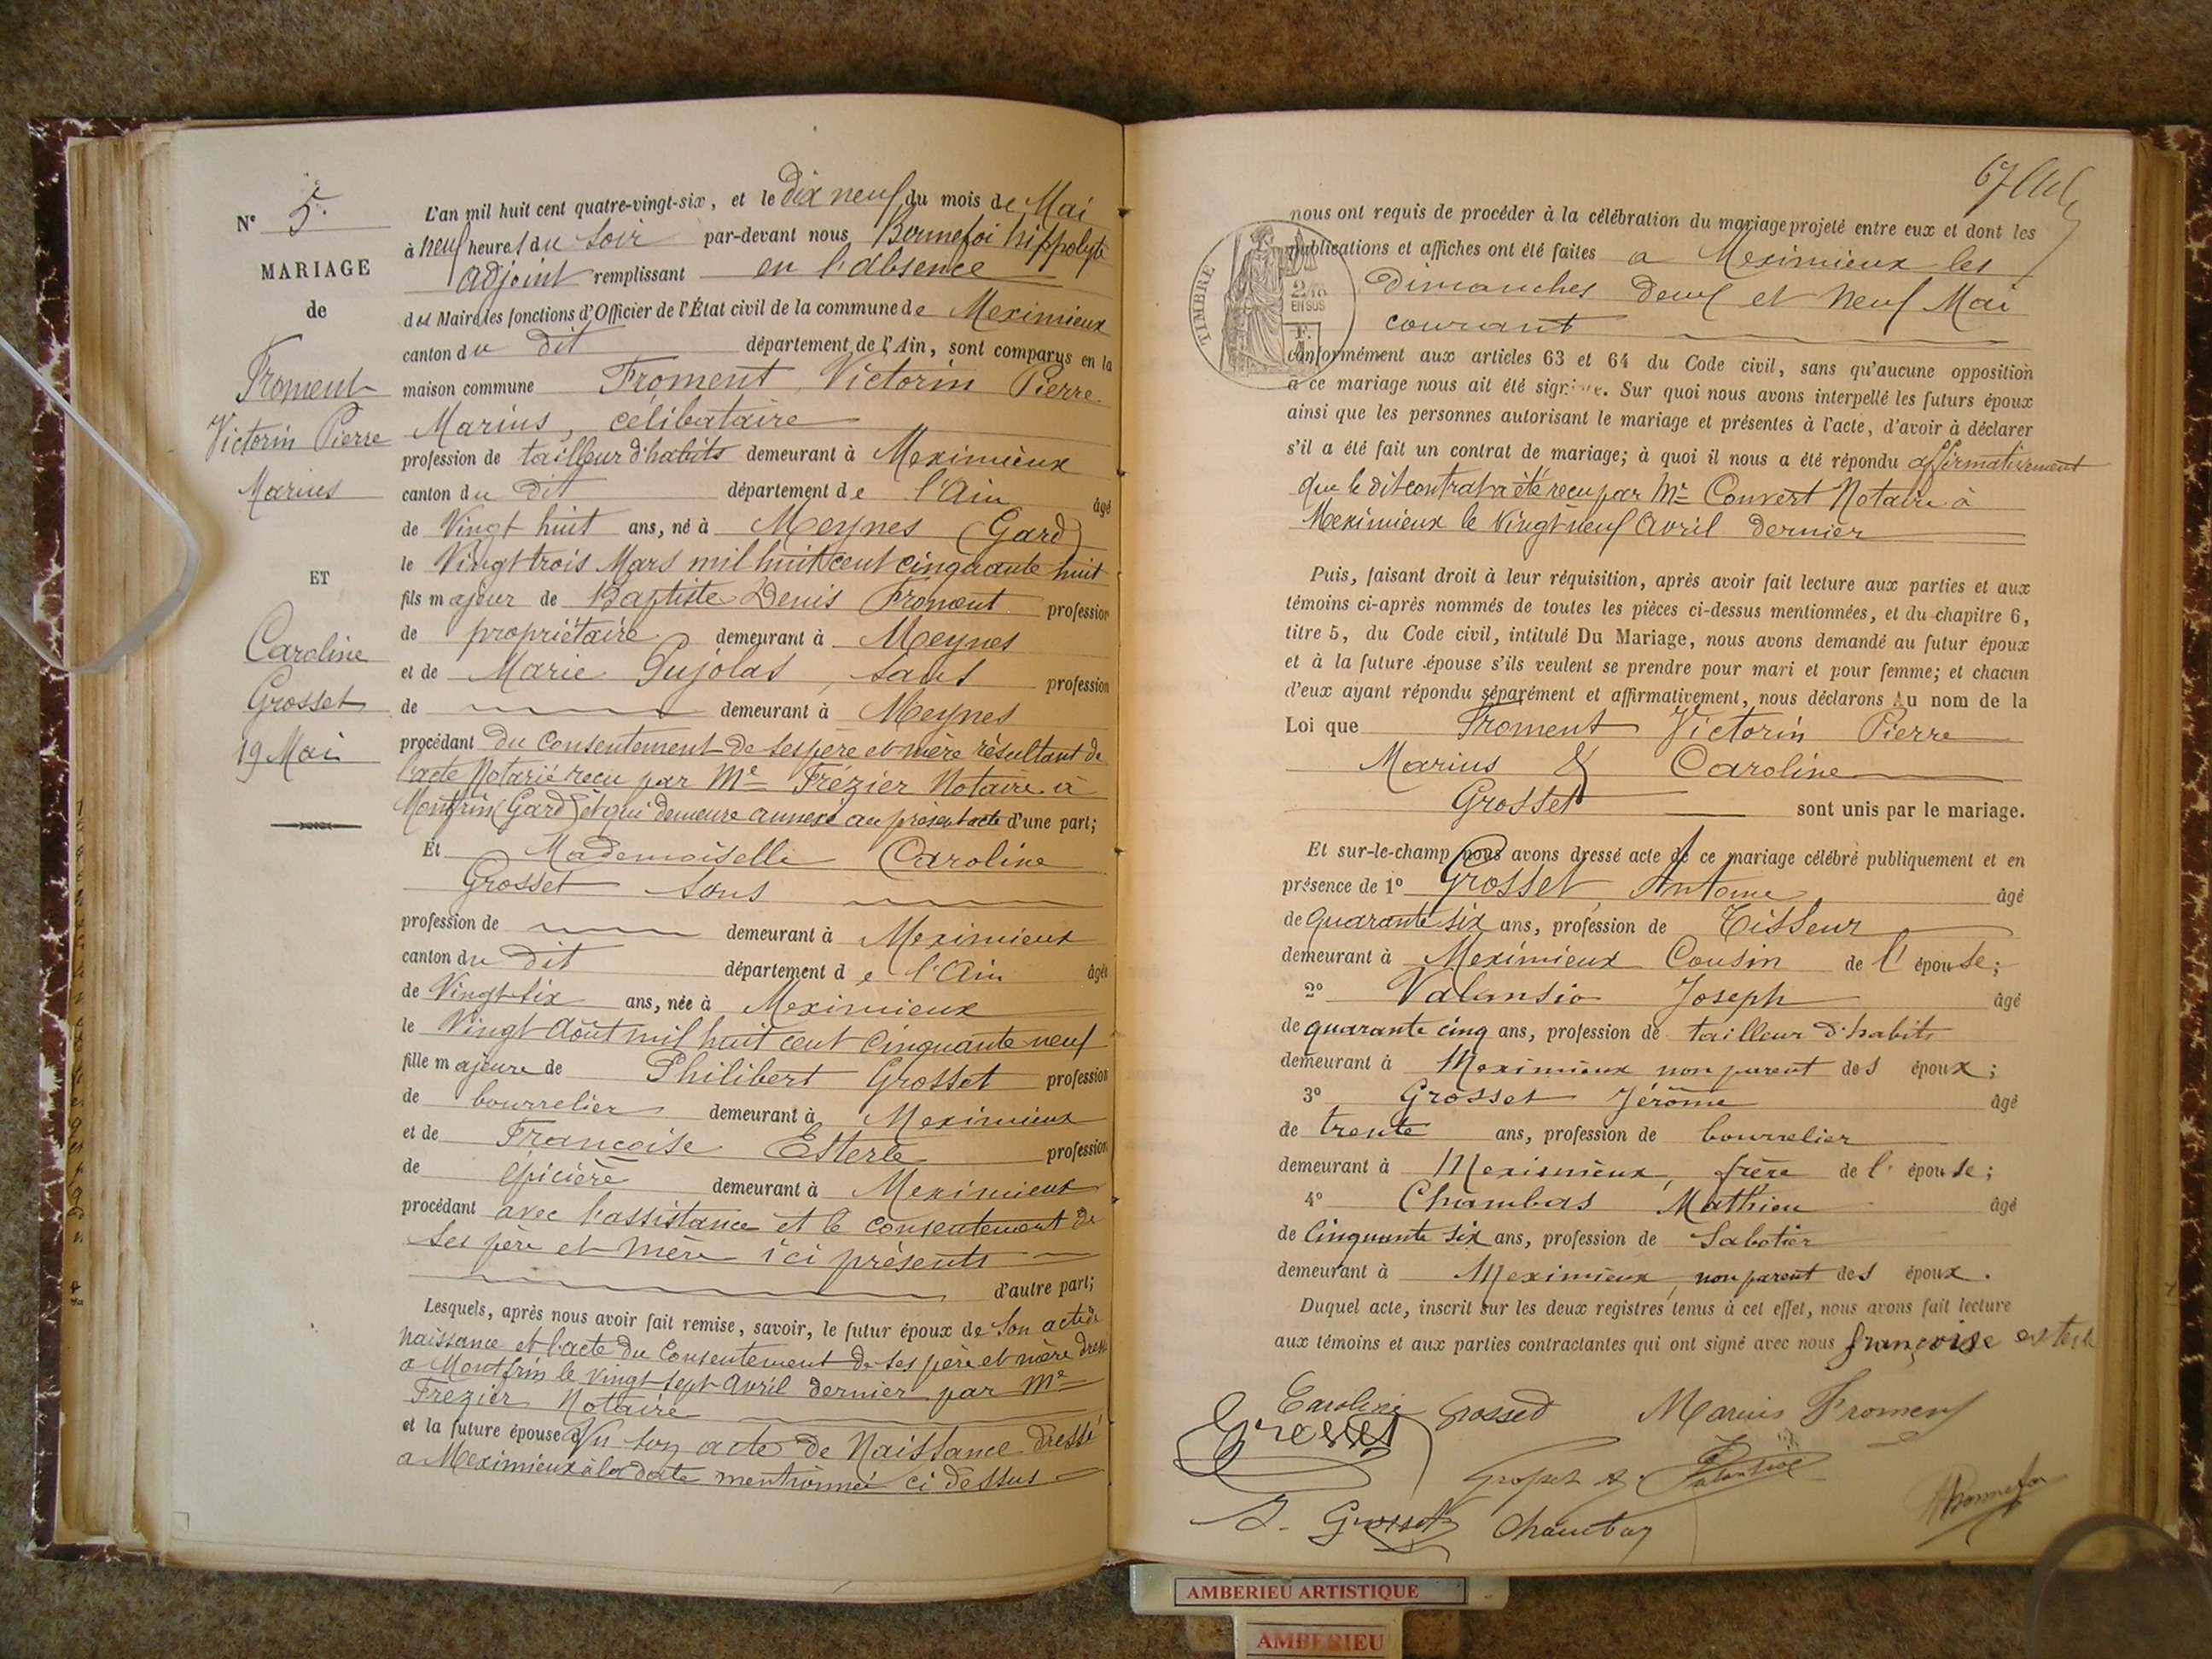 N° 5.
MARIAGE
de
Froment
Victorin Pierre
Marius
ET
Caroline
Grosset
19 Mai
L'an mil huit cent quatre-vingt-six, et le dix neuf du mois de Mai
à neuf heures du soir par-devant nous Bonnefoi hippolyte
adjoint remplissant en l'absence
du Maire les fonctions d'Officier de l'État civil de la commune de Meximieux
canton du dit département de l'Ain, sont comparus en la
maison commune Froment Victorin Pierre
Marius, célibataire
profession de tailleur d'habits demeurant à Meximieux
canton du dit département de l'Ain âgé
de Vingt huit ans, né à Meynes (Gard)
le Vingt trois Mars mil huit cent cinquante huit
fils majeur de Baptiste Denis Froment profession
de propriétaire demeurant à Meynes
et de Marie Pujolas, sans profession
de demeurant à Meynes
procédant du consentement de ses père et mère résultant de
l'acte Notarié recu par Me Frézier Notaire à
Montfrin (Gard) et qui demeure annexé au présent acte d'une part;
Et Mademoiselle Caroline
Grosset sans
profession de demeurant à Meximieux
canton du dit département de l'Ain âgée
de Vingt six ans, née à Meximieux
le Vingt Août mil huit cent cinquante neuf
fille majeure de Philibert Grosset profession
de bourrelier demeurant à Meximieux
et de Francoise Esterle profession
de épicière demeurant à Meximieux
procédant avec l'assistance et le consentement de
ses père et mère ici présents
d'autre part;
Lesquels, après nous avoir fait remise, savoir, le futur époux de son acte de
naissance et l'acte du consentement de ses père et mère dressé
a Montfrin le vingt sept avril dernier par Me
Frezier Notaire
et la future épouse son acte de Naissance dressé
a Meximieux à la date mentionnée ci dessus
67
TIMBRE
2/10
EN SUS
nous ont requis de procéder à la célébration du mariage projeté entre eux et dont les
publications et affiches ont été faites a Meximieux les
dimanches deux et neuf Mai
courant
conformément aux articles 63 et 64 du Code civil, sans qu'aucune opposition
à ce mariage nous ait été signifiée. Sur quoi nous avons interpellé les futurs époux
ainsi que les personnes autorisant le mariage et présentes à l'acte, d'avoir à déclarer
s'il a été fait un contrat de mariage; à quoi il nous a été répondu affirmativement
que le dit contrat a été recu par Mr Convert Notaire à
Meximieux le vingt neuf avril dernier
Puis, faisant droit à leur réquisition, après avoir fait lecture aux parties et aux
témoins ci-après nommés de toutes les pièces ci-dessus mentionnées, et du chapitre 6,
titre 5, du Code civil, intitulé Du Mariage, nous avons demandé au futur époux
et à la future épouse s'ils veulent se prendre pour mari et pour femme; et chacun
d'eux ayant répondu séparément et affirmativement, nous déclarons Au nom de la
Loi que Froment Victorin Pierre
Marius & Caroline
Grosset sont unis par le mariage.
Et sur-le-champ nous avons dressé acte de ce mariage célébré publiquement et en
présence de 1° Grosset Antoine âgé
de quarante six ans, profession de Tisseur
demeurant à Meximieux Cousin de l'épouse;
2° Valansio Joseph âgé
de quarante cinq ans, profession de tailleur d'habits
demeurant à Meximieux non parent des époux;
3° Grosset Jérôme âgé
de trente ans, profession de bourrelier
demeurant à Meximieux, frère de l'épouse;
4° Chambas Mathieu âgé
de Cinquante six ans, profession de Sabotier
demeurant à Meximieux, non parent des époux.
Duquel acte, inscrit sur les deux registres tenus à cet effet, nous avons fait lecture
aux témoins et aux parties contractantes qui ont signé avec nous françoise esterle
Caroline Grosset Marius Froment
Grosset
J. Grosset Chambas Bonnefoi
AMBERIEU ARTISTIQUE
AMBERIEU